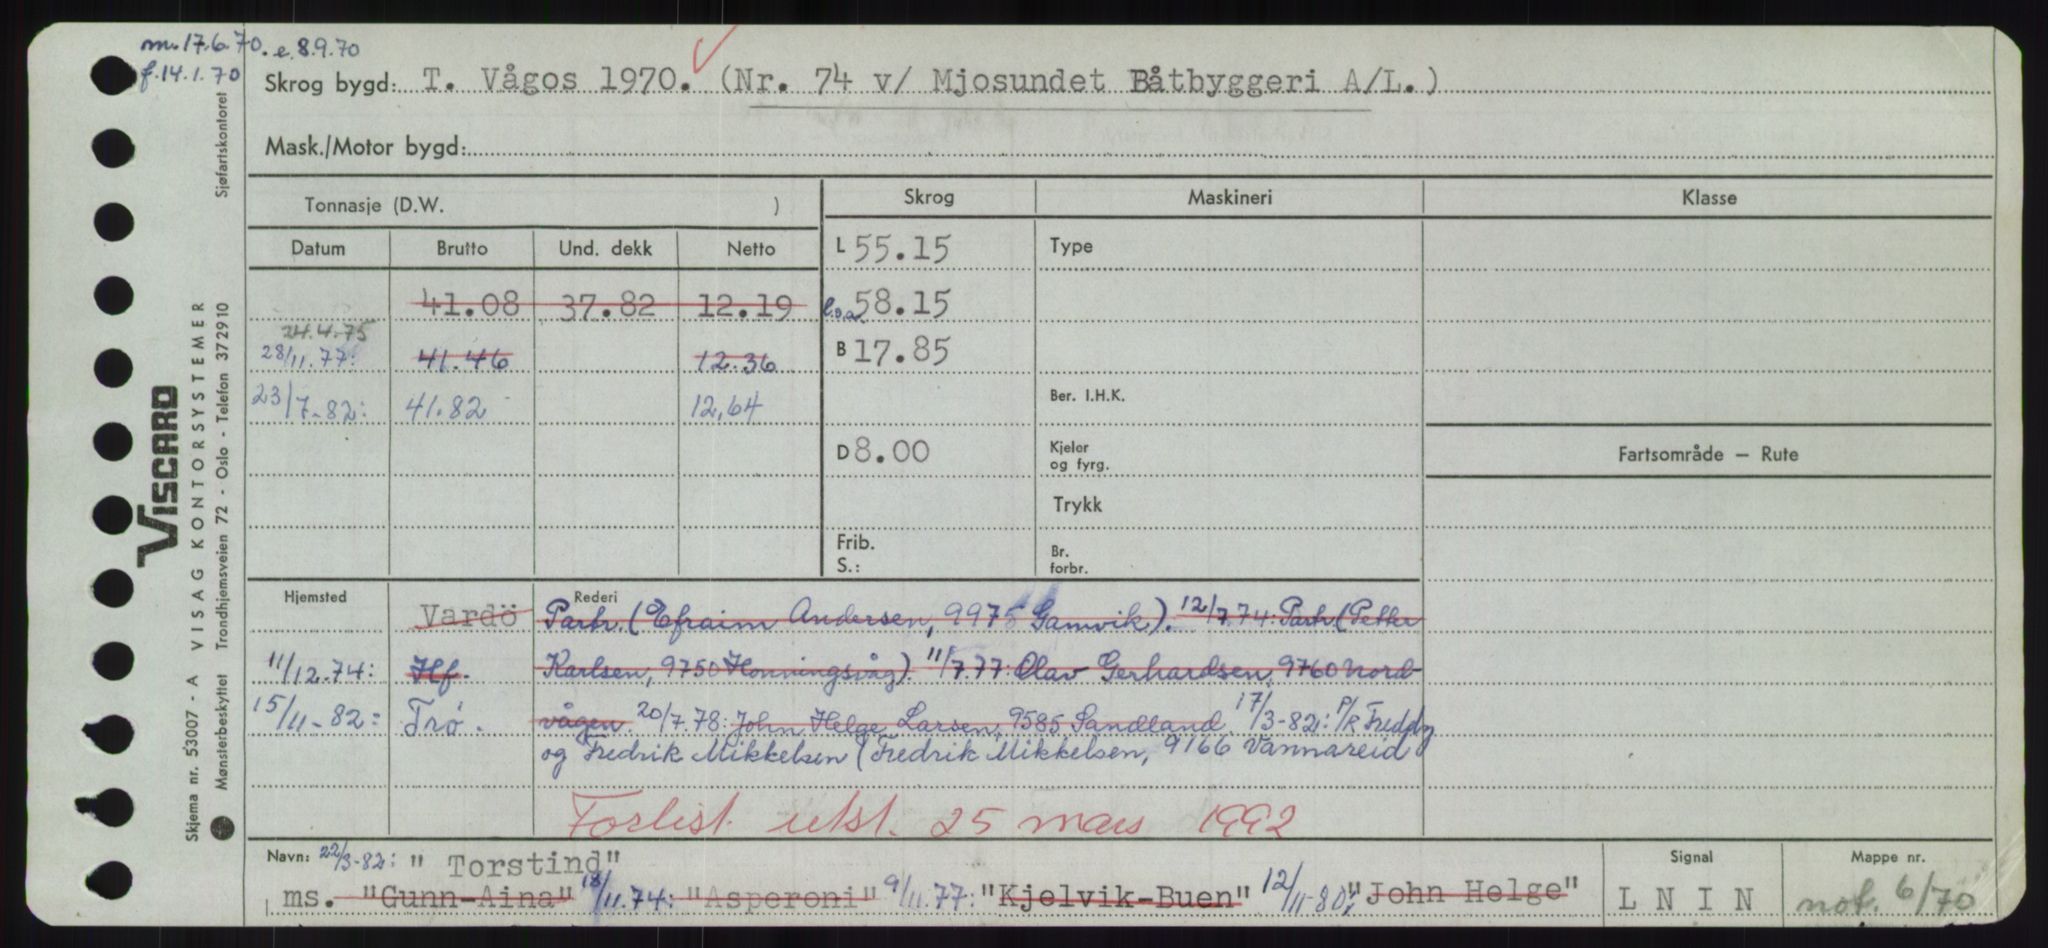 m. 17.6.70. e. 8.9.70
f. 14.1.70
Skrog bygd: T. Vågos 1970. (Nr. 74 v/ Mjosundet Båtbyggeri A/L.)
Mask./Motor bygd:
Tonnasje (D.W. )
Skrog Maskineri Klasse
Datum Brutto Und. dekk Netto
L 55.15 Type
41.08 37.82 12.19 l.o.a. 58.15
24.4.75
28/11.77: 41.46 12.36 B 17.85
23/7-82: 41.82 12,64 Ber. I.H.K.
D 8.00 Kjeler og fyrg. Fartsområde — Rute
Trykk
Frib. S.: Br. forbr.
Hjemsted Rederi
Vardö Parh. (Efraim Andersen, 9975 Gamvik). 12/7.74: Parh. (Petter
11/12.74: Hf. Karlsen, 9750 Honningsvåg). 11/7.77: Olav Gerhardsen, 9760 Nord-
15/11-82: Trø. vågen 20/7.78: John Helge Larsen, 9585 Sandland. 17/3-82: P/R Freddy
og Fredrik Mikkelsen (Fredrik Mikkelsen, 9166 Vannareid
Forlist utst. 25 mars 1992
Navn: 22/3-82: "Torstind"
ms. "Gunn-Aina" 18/11.74: "Asperoni" 9/11.77: "Kjelvik-Buen" 12/11-80: "John Helge"
Signal
L N I N
Mappe nr.
not. 6/70
VISCARD
Skjema nr. 53007 - A VISAG KONTORSYSTEMER
Mønsterbeskyttet Trondhjemsveien 72 - Oslo - Telefon 372910 Sjøfartskontoret